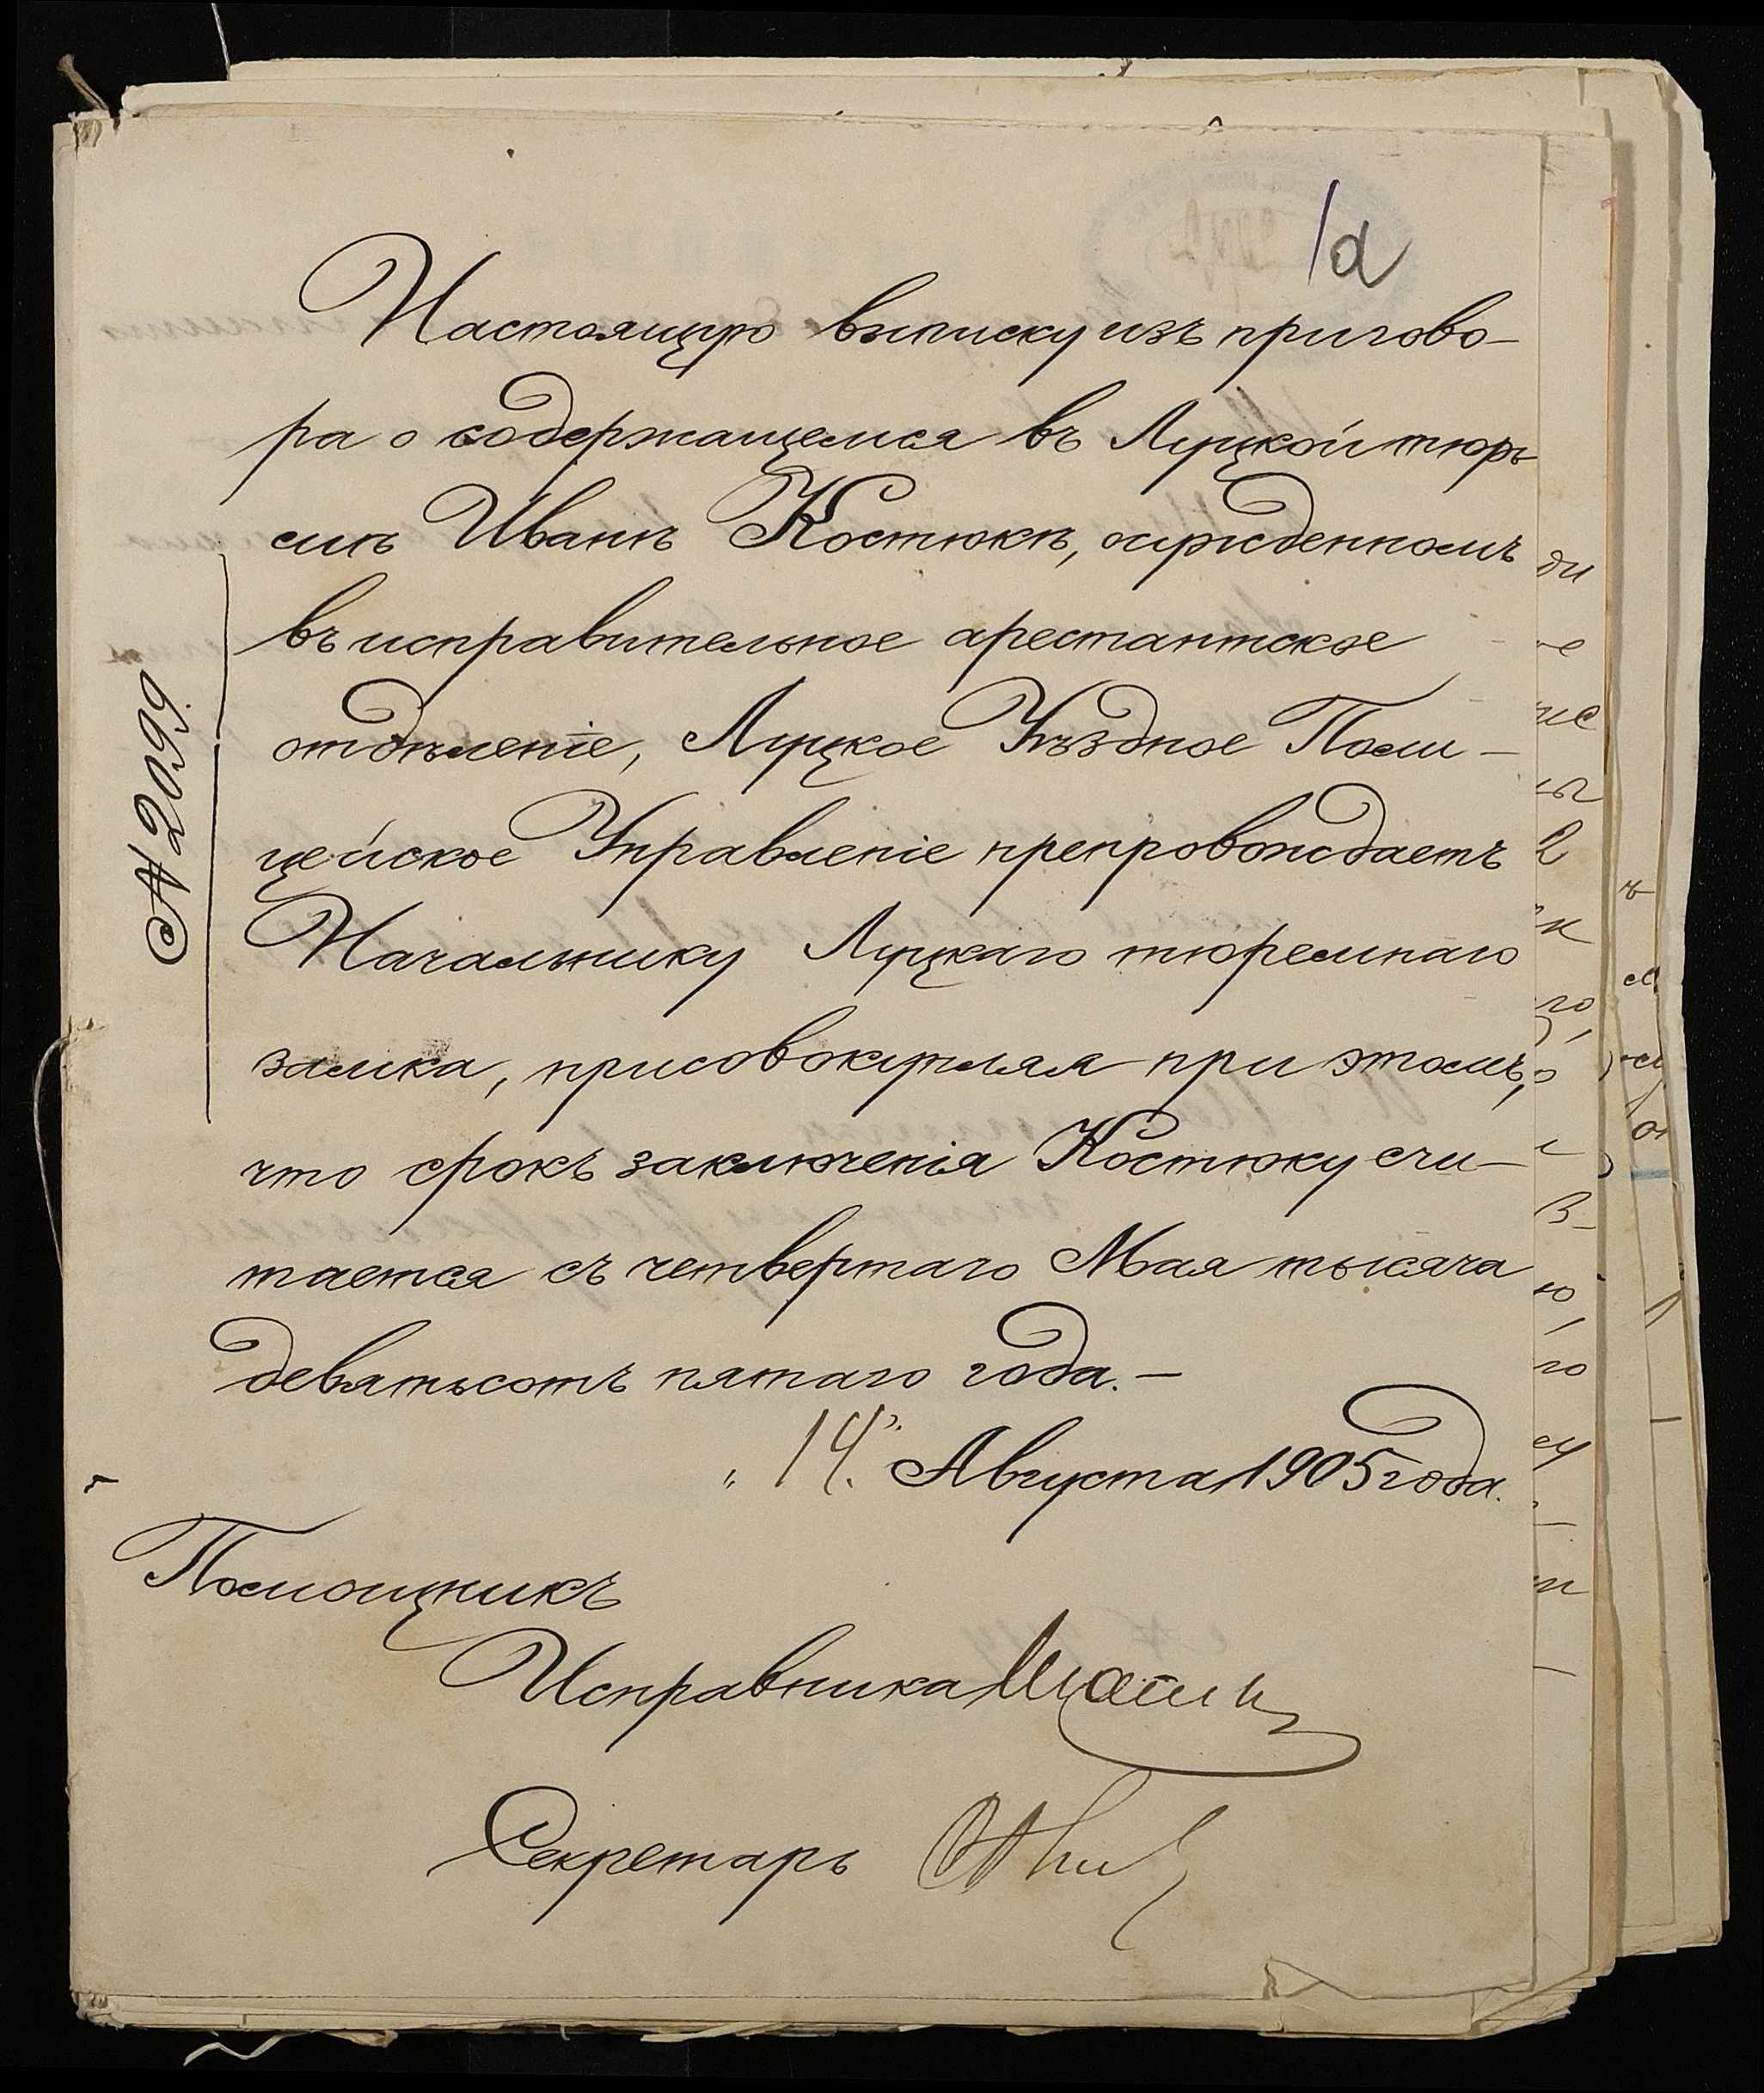 1а
Настоящую выписку изъ пригово-
ра о содержащемся въ Луцкой тюрь
мѣ Иванѣ Костюкѣ, осужденномъ
въ исправительное арестантское
отдѣленіе, Луцкое Уѣздное Поли-
цейское Управленіе препровождаетъ
Начальнику Луцкаго тюремнаго
замка, присовокупляя при этомъ,
что срокъ заключенія Костюку счи-
тается съ четвертаго Мая тысяча
девятьсотъ пятаго года.-
"14" Августа 1905 года.
№ 2099
Помощникъ
Исправника
Секретарь